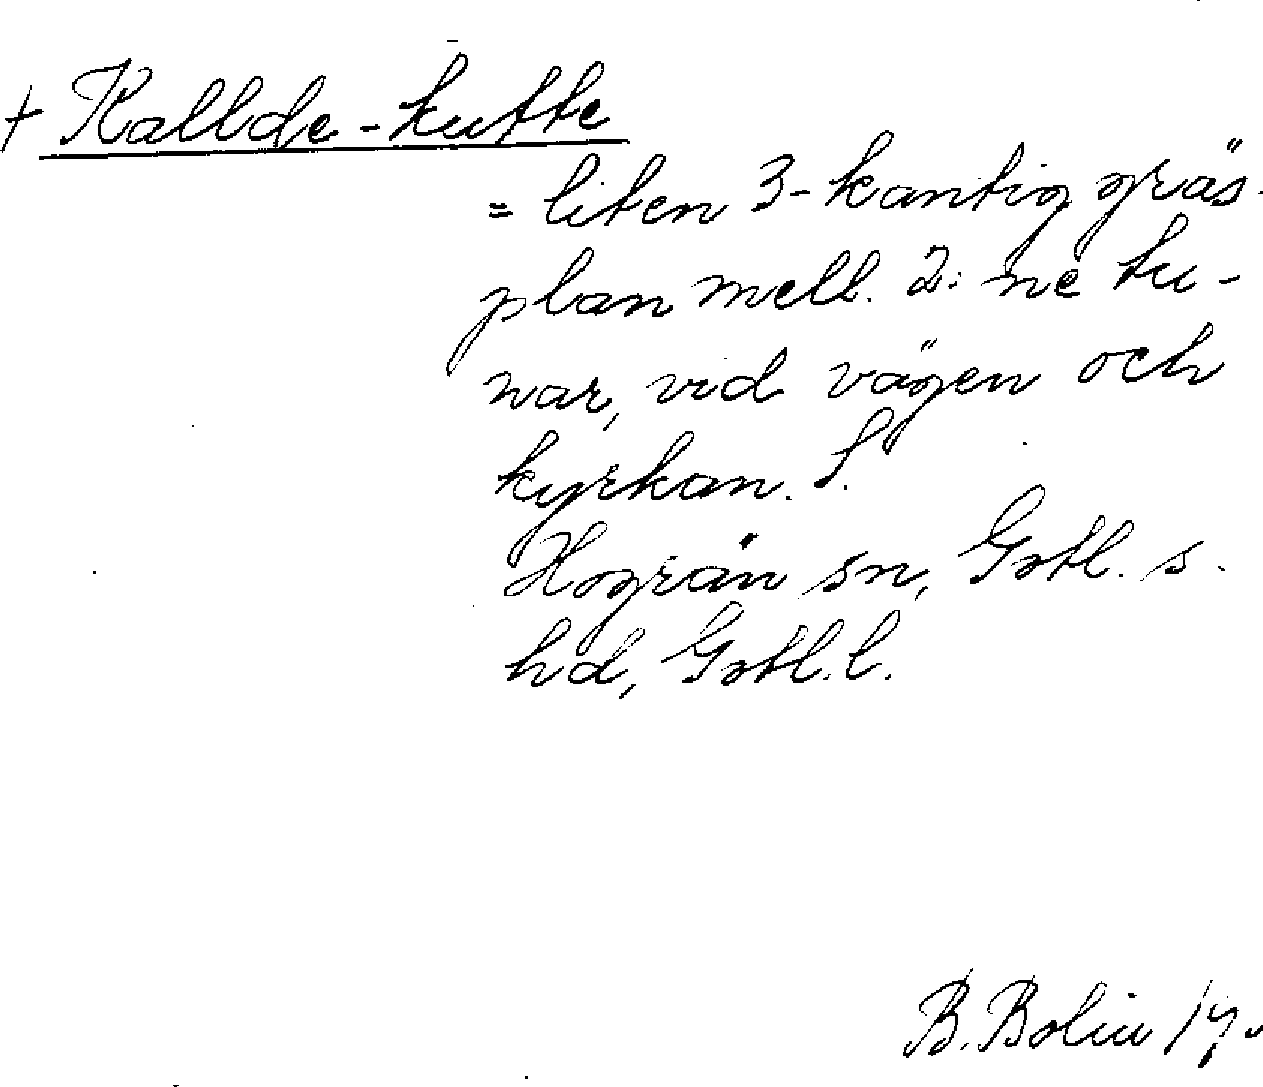 + Kallde-kutte
= liten 3-kantig gräs-
plan mell. 2:ne tu-
nar, vid vägen och
kyrkan. S.
Hogrän sn, Gotl. s.
hd, Gotl. l.
B. Bolin